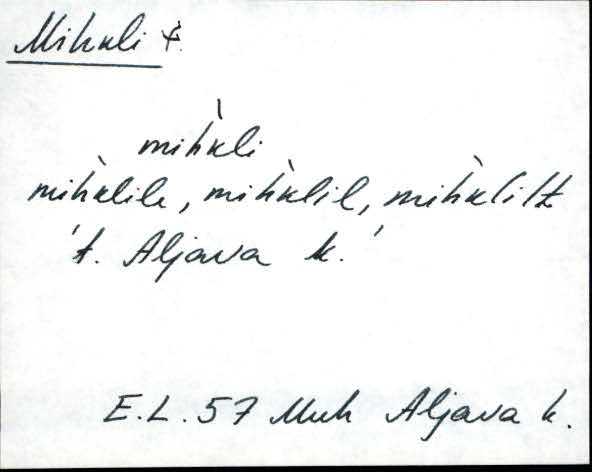 Mihkli t.
mìhkli
mìhklile, mìhklil, mìhklilt
't. Aljava k.'
E.L. 57 Muh Aljava k.